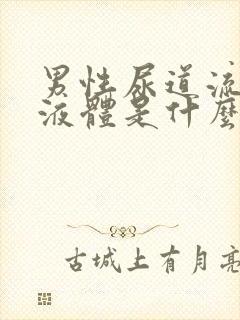 男性尿道流
液體是什麼
古城上有月亮